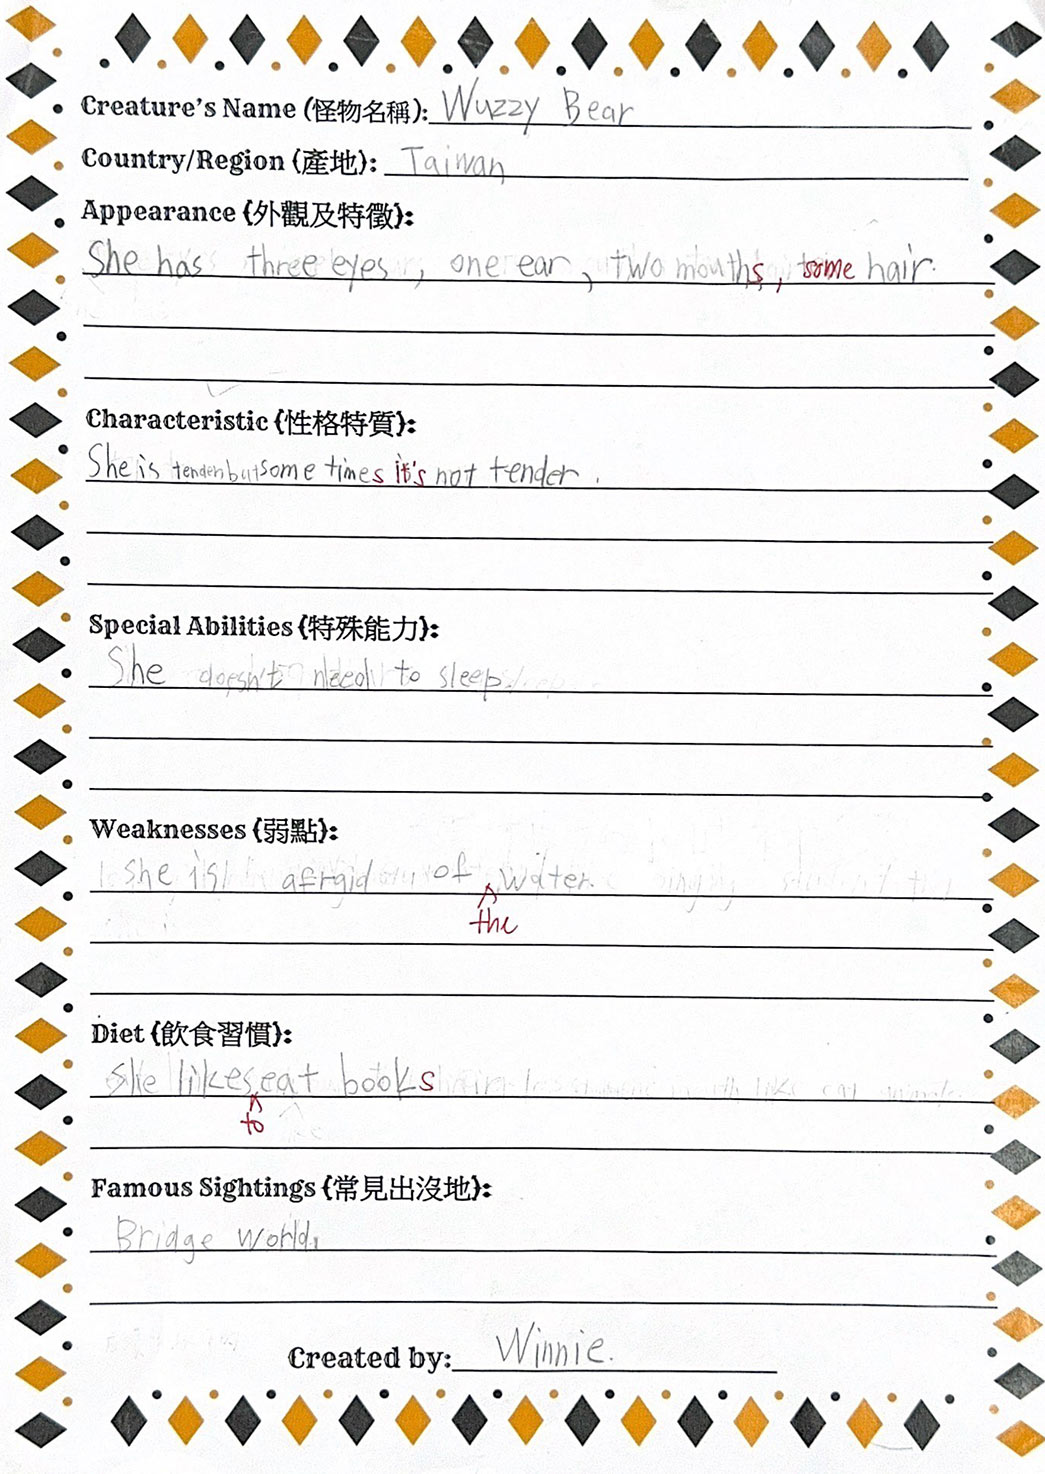 Creature's Name (怪物名稱): Wuzzy Bear
Country/Region (產地): Taiwan
Appearance (外觀及特徵):
She has three eyes, one ear, two mouths, some hair.
Characteristic (性格特質):
She is tender but some times it's not tender.
Special Abilities (特殊能力):
She doesn't need to sleep
Weaknesses (弱點):
she is afraid of water.
the
Diet (飲食習慣):
She likes eat books
to
Famous Sightings (常見出沒地):
Bridge world.
Created by: Winnie.